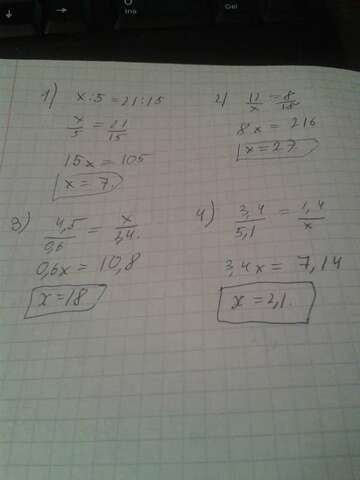 0
Ins
Del
1) x:5=21:15
x/5 = 21/15
15x=105
x=7.
2) 12/x = 8/18
8x = 216
x=27.
3) 4,5/0,6 = x/2,4.
0,6x=10,8
x=18
4) 3,4/5,1 = 1,4/x
3,4x = 7,14
x=2,1.